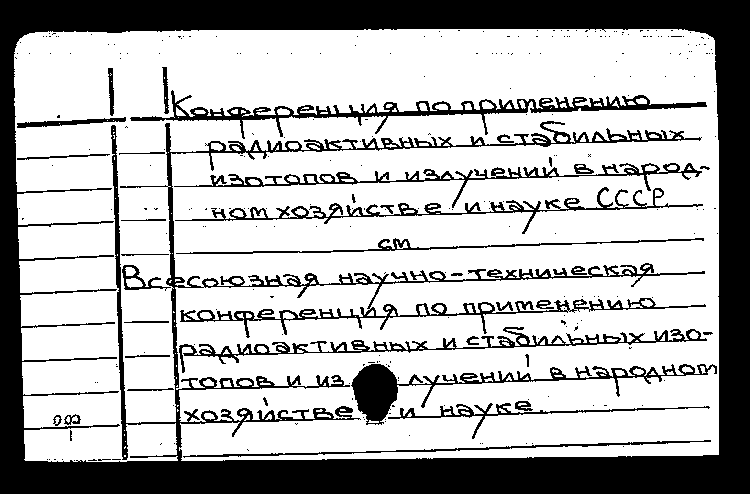 Конференция по применению
радиоактивных и стабильных
изотопов и излучений в народ-
ном хозяйстве и науке СССР
см
Всесоюзная научно-техническая
конференция по применению
радиоактивных и стабильных изо-
топов и излучений в народном
хозяйстве и науке.